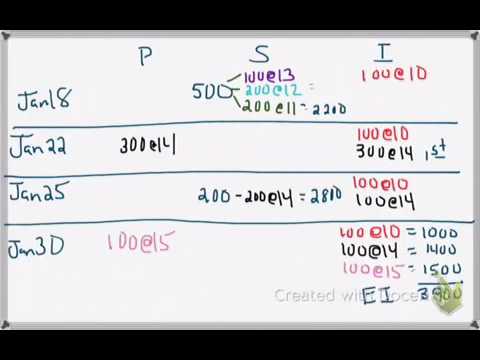 P S I
100@13 100@10
500 200@12 =
Jan18 200@11 = 2200
100@10
Jan22 300@14 300@14 1st
100@10
Jan25 200 - 200@14 = 2800 100@14
100@10 = 1000
Jan30 100@15 100@14 = 1400
100@15 = 1500
EI 3900
Created with